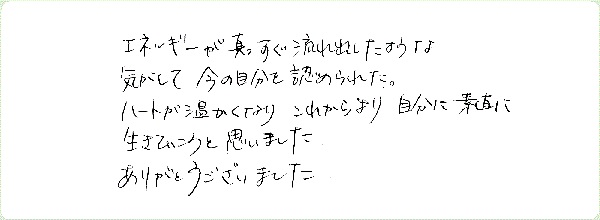 エネルギーが真っすぐ流れ出したような
気がして 今の自分を認められた。
ハートが温かくなり これからより 自分に素直に
生きていこうと思いました
ありがとうございました